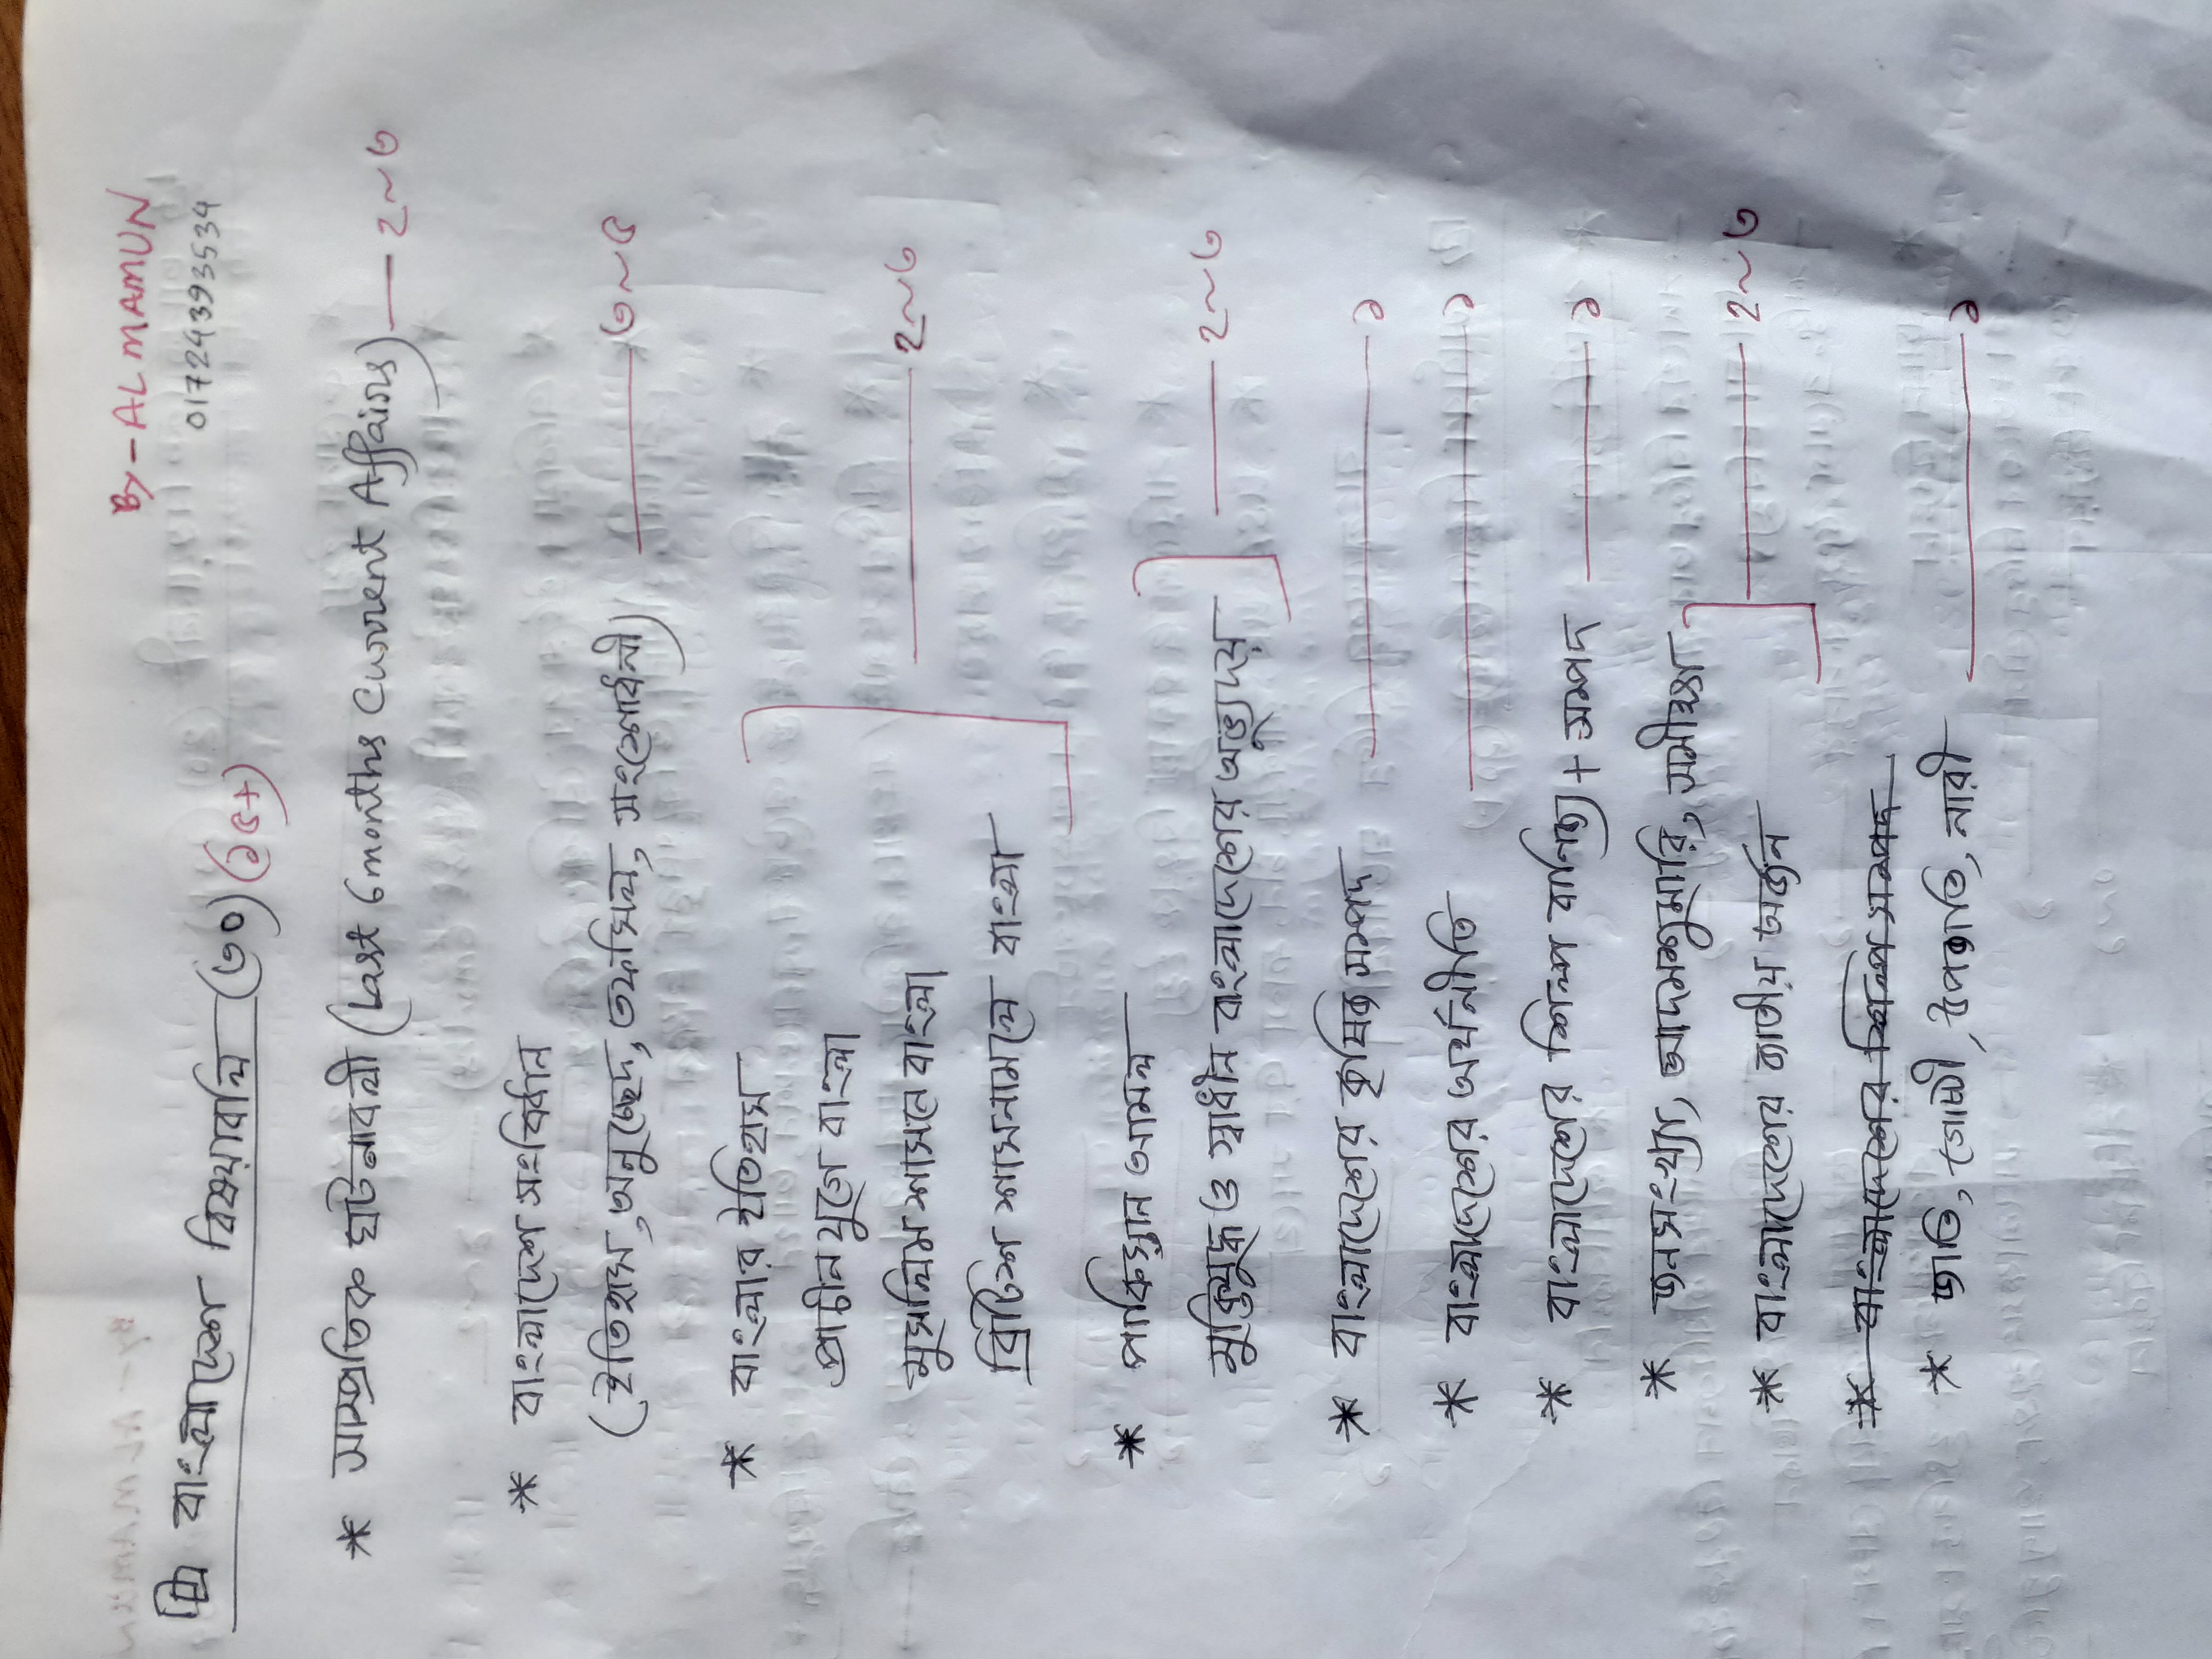 By - AL MAMUN
01724393534
বাংলাদেশ বিষয়াবলি (৩০) (১৫+)
* সাম্প্রতিক ঘটনাবলী (Last 6 months Current Affairs) — 2~৩
* বাংলাদেশ সংবিধান
(ইতিহাস, অনুচ্ছেদ, তফসিল, সংশোধনী) — ৩~৫
* বাংলার ইতিহাস
প্রাচীন যুগে বাংলা
মুসলিম শাসনে বাংলা — 2~৩
ব্রিটিশ শাসনামলে বাংলা
* পাকিস্তান আমল
মুক্তিযুদ্ধ ও স্বাধীন বাংলাদেশের অভ্যুদয় — 2~৩
* বাংলাদেশের কৃষিজ সম্পদ — ১
* বাংলাদেশের অর্থনীতি — ১
* বাংলাদেশের শিল্প বাণিজ্য + সম্পদ — ১
* জনসংখ্যা, আদমশুমারি, সমীক্ষা
* বাংলাদেশের জাতীয় অর্জন — 2~৩
* বাংলাদেশের শিল্প সম্পদ
* জাতি, গোষ্ঠী, উপজাতি, নারী — ১